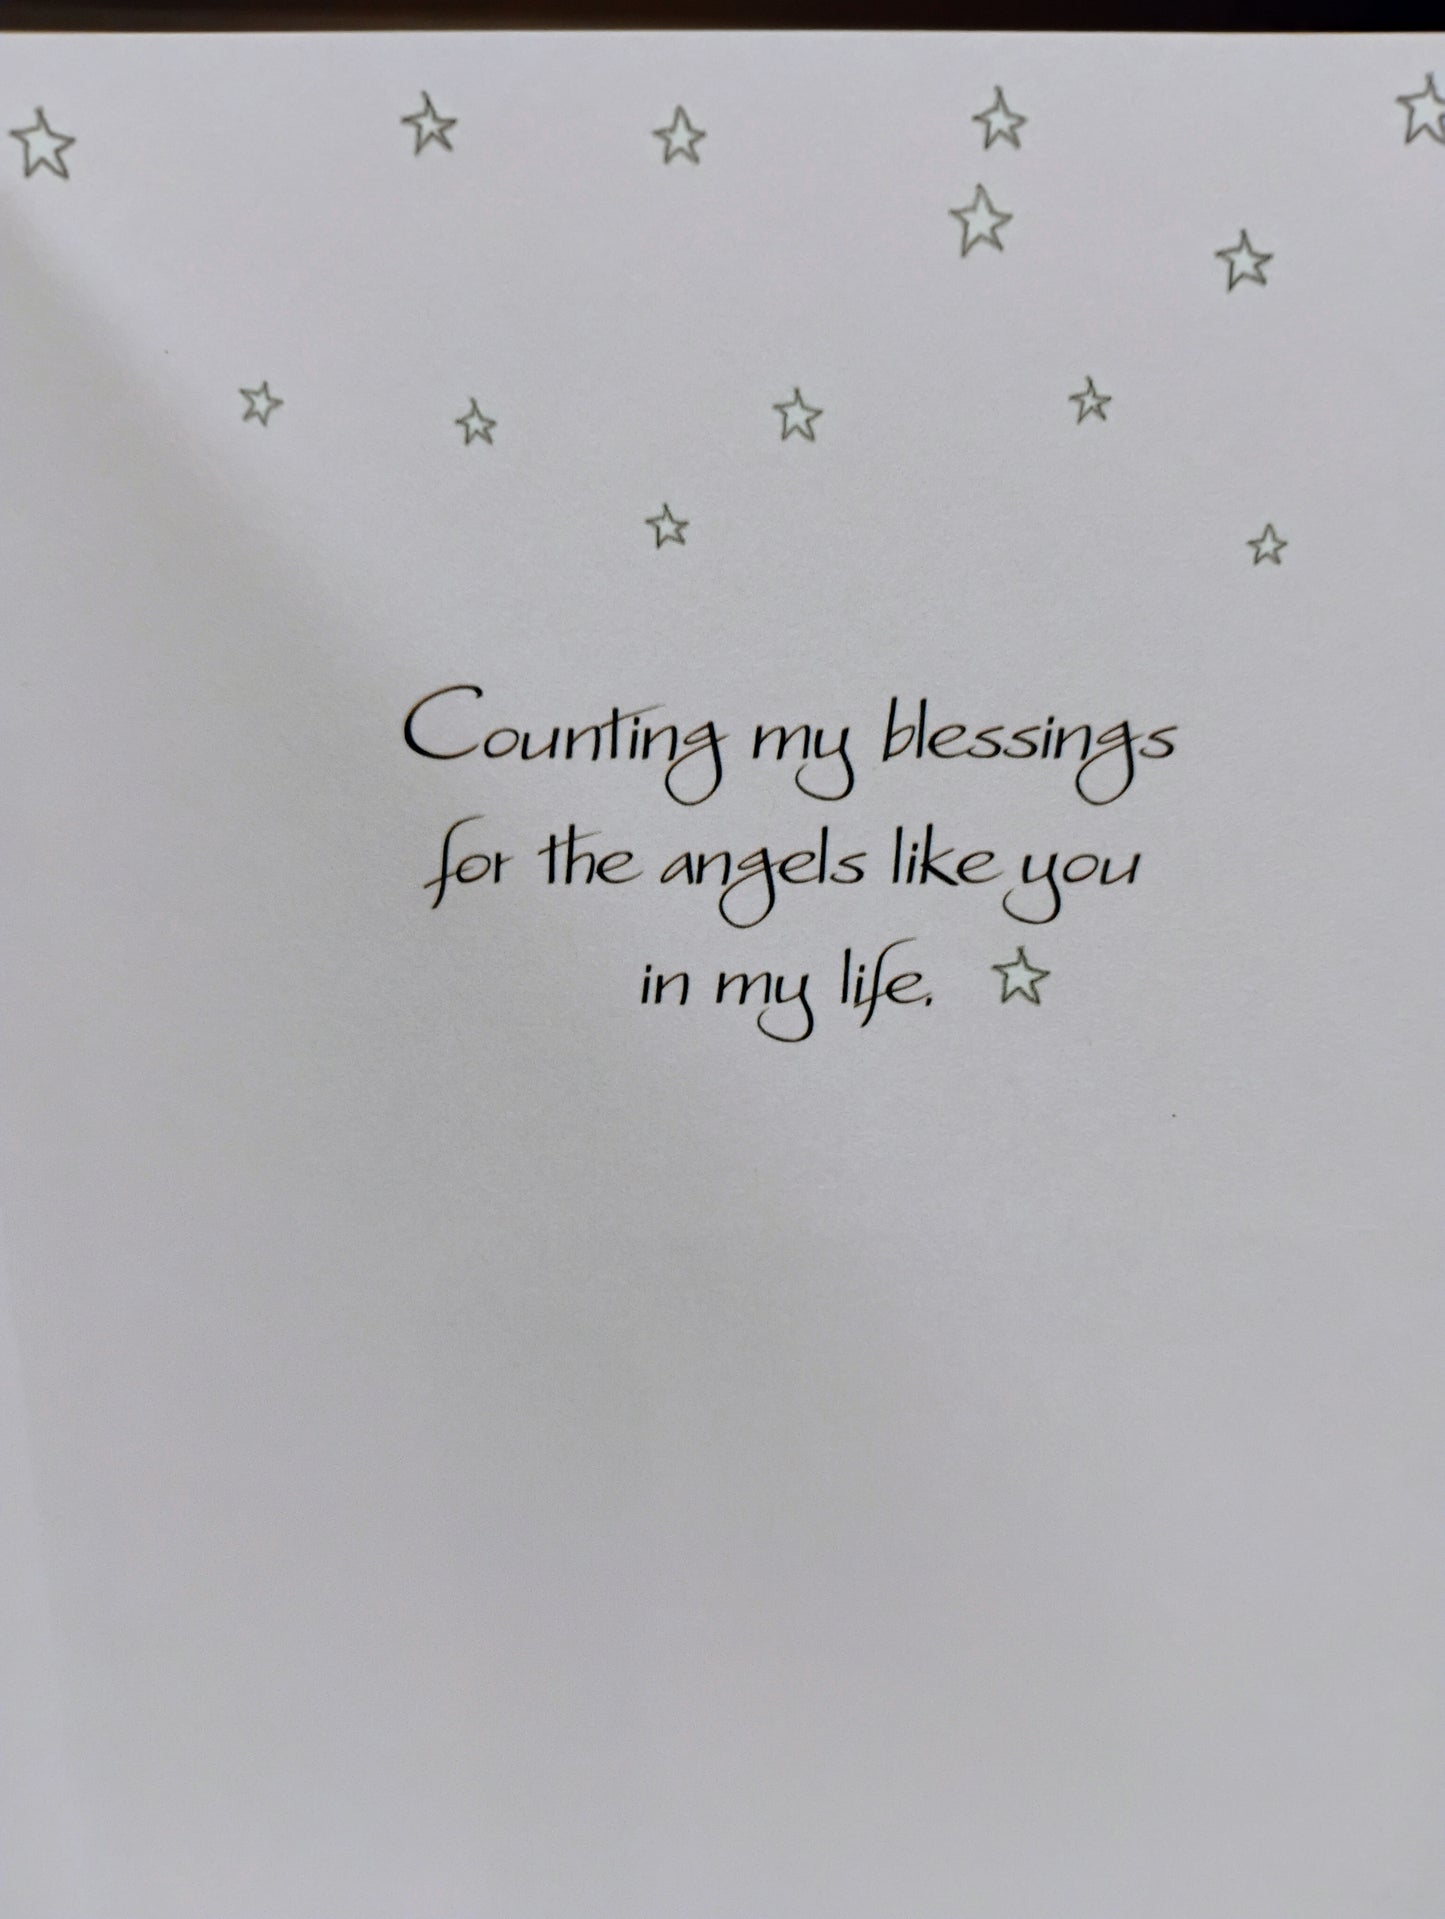 Counting my blessings
for the angels like you
in my life.